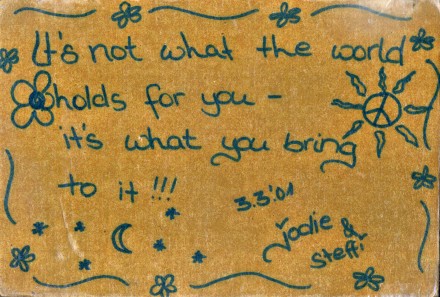 It's not what the world
holds for you -
it's what you bring
to it !!!
3.3.'01
Jodie &
Steffi